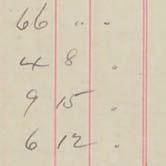 66 " "
4 8 "
9 15 "
6 12 "